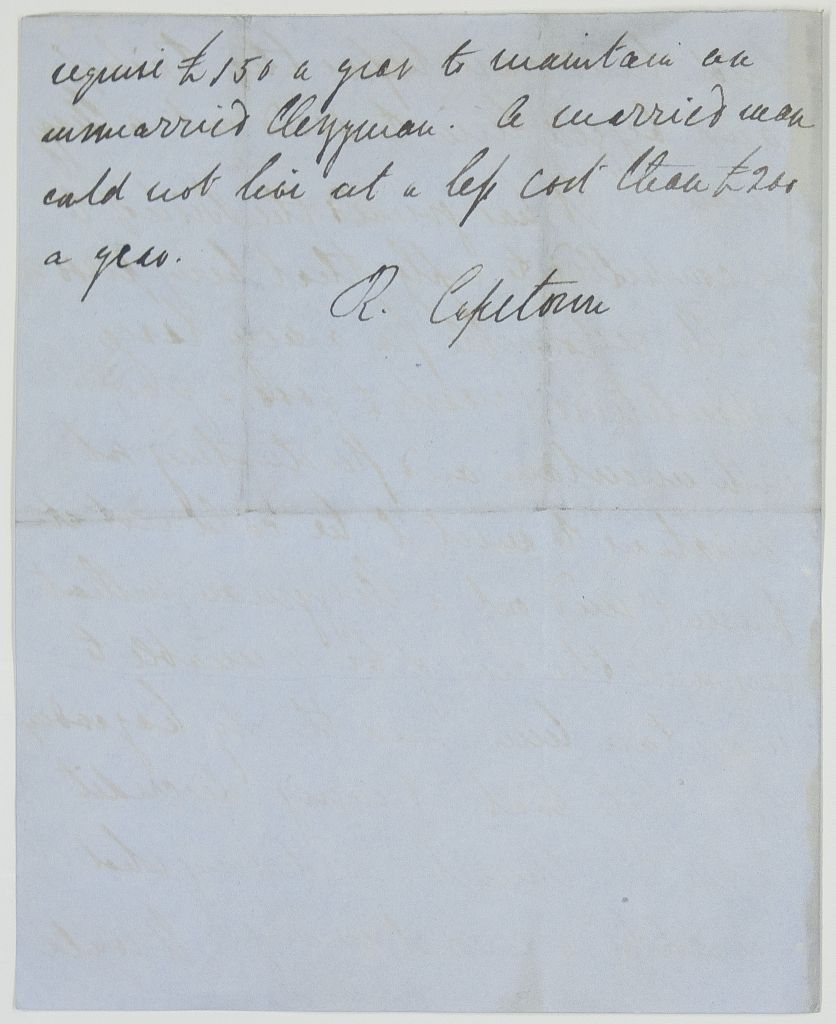 require £150 a year to maintain an
unmarried Clergyman. A married man
could not live at a less cost than £200
a year.
R. Capetown